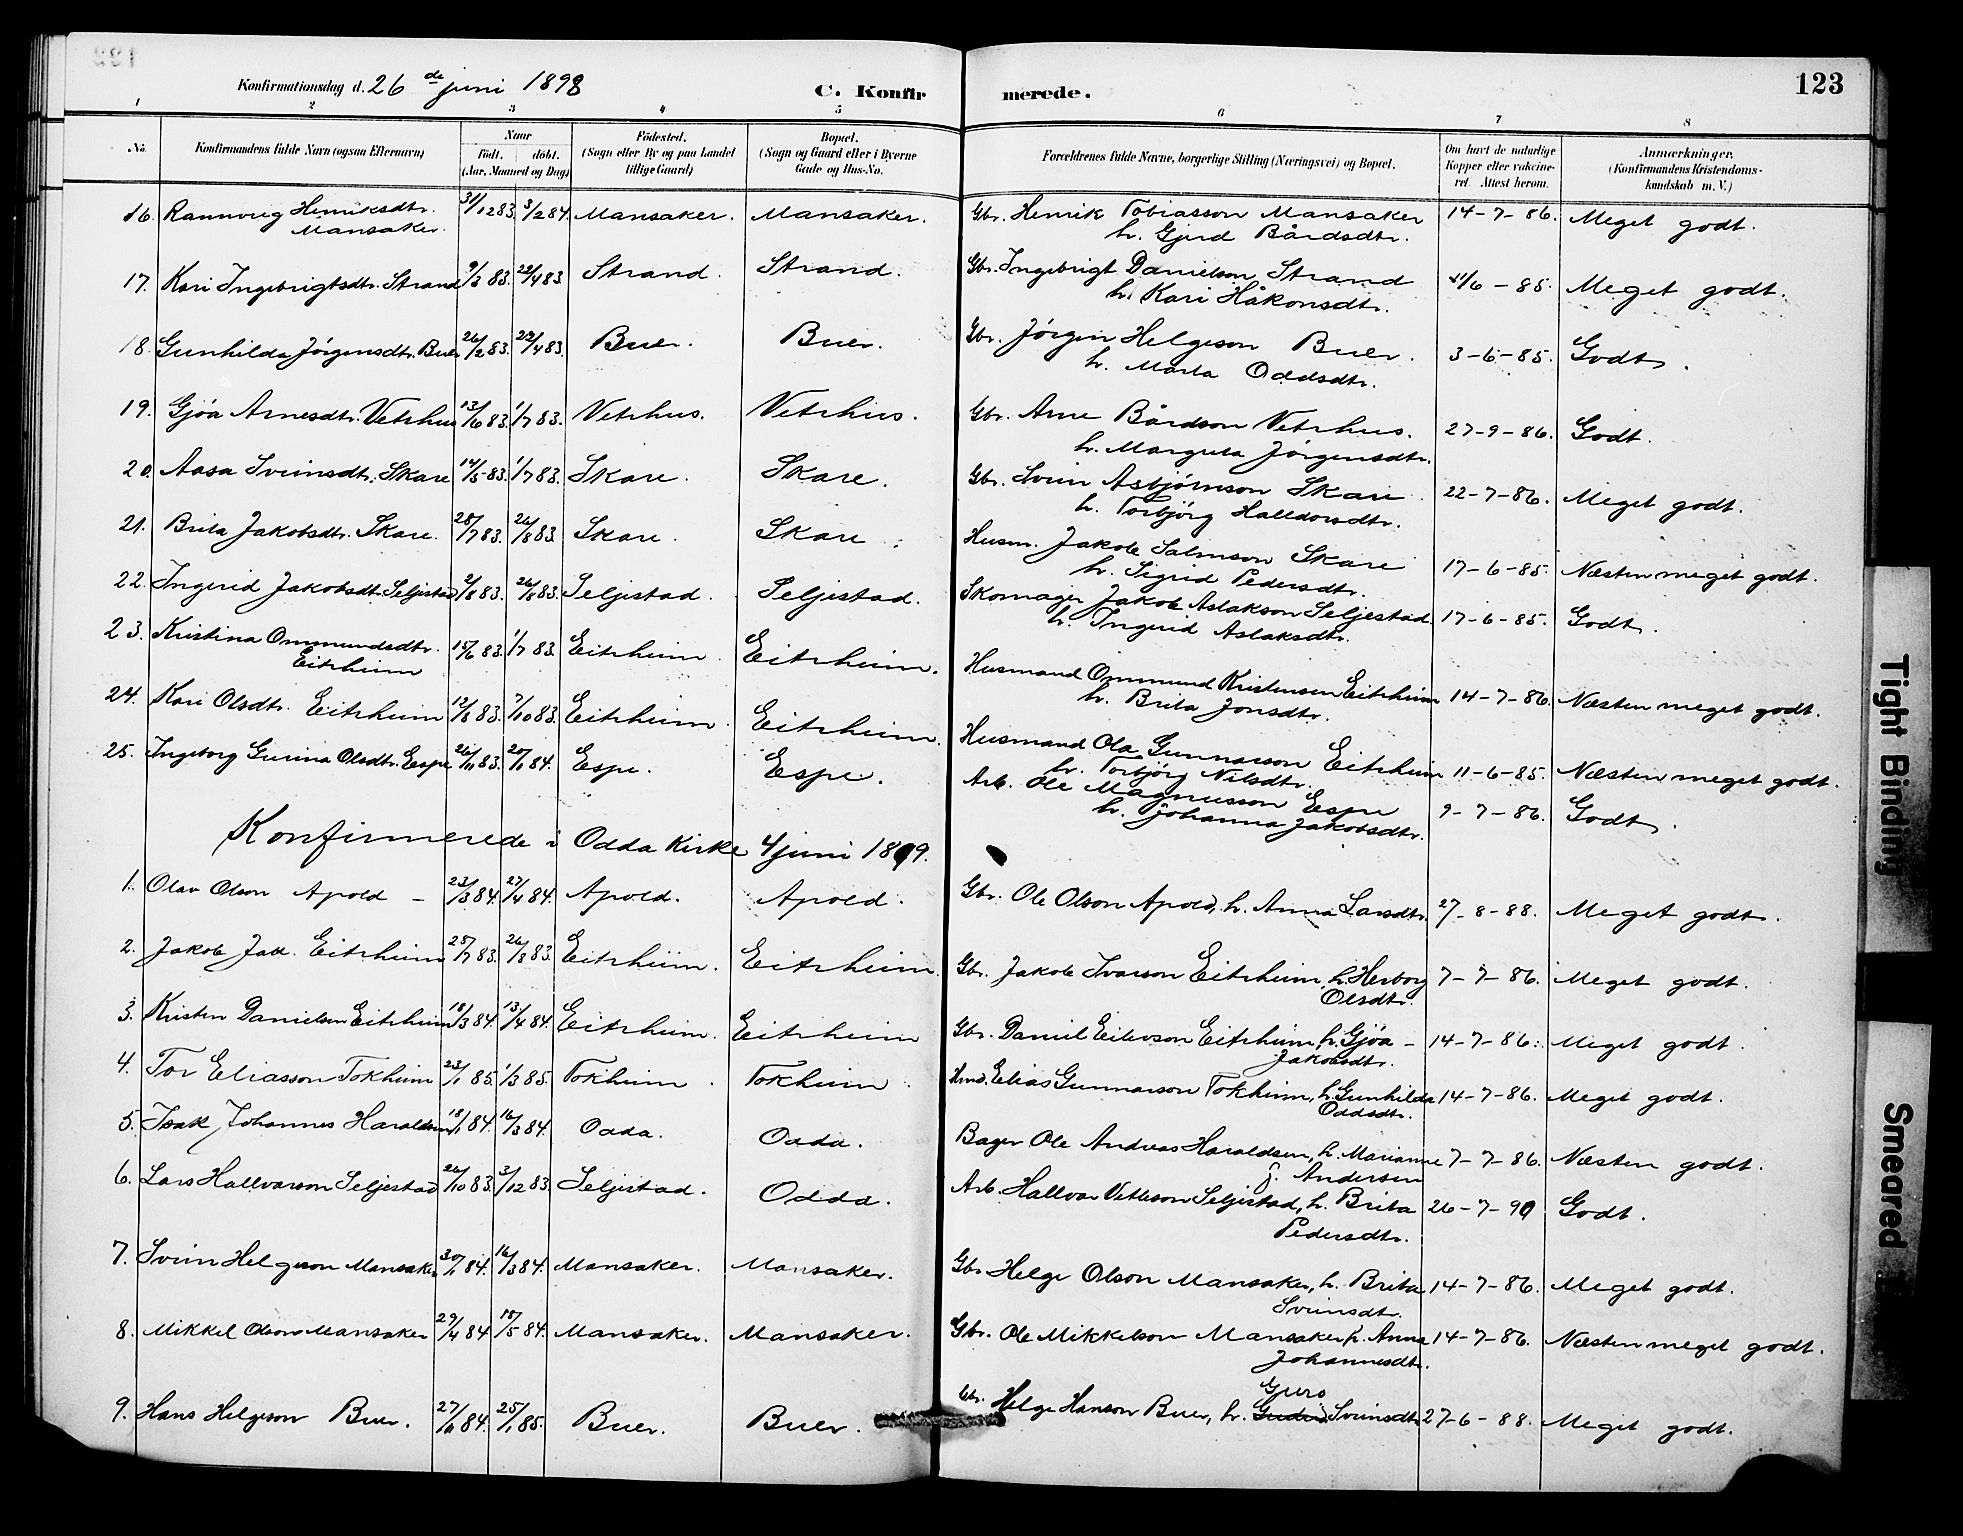 123
Konfirmationsdag d. 26 de juni 1898
C. Konfirmerede.
1 2 3 4 5 6 7 8
No. Konfirmandens fulde Navn (ogsaa Efternavn) Naar født. døbt. (Aar, Maaned og Dag) Fødested. (Sogn eller By og paa Landet tillige Gaard) Bopæl. (Sogn og Gaard eller i Byerne Gade og Hus-No. Forældrenes fulde Navne, borgerlige Stilling (Næringsvei) og Bopæl. Om havt de naturlige Kopper eller vakcineret. Attest herom. Anmærkninger. (Konfirmandens Kristendomskundskab m. V.)
16. Rannveig Henriksdtr. Mansaker. 31/12 83. 3/2 84. Mansaker. Mansaker. Gbr. Henrik Tobiasson Mansaker 14-7-86. Meget godt.
h. Gjerd Bårdsdtr.
17. Kari Ingebrigtsdtr. Strand 9/3 83. 22/4 83. Strand. Strand. Gbr. Ingebrigt Danielson Strand 11/6-85. Meget godt.
h. Kari Håkonsdtr.
18. Gunhilda Jørgensdtr. Buer 26/2 83. 22/4 83. Buer. Buer. Gbr. Jørgen Helgeson Buer. 3-6-85. Godt.
h. Marta Oddsdtr.
19. Gjøa Arnesdtr. Vetrhus 13/6 83. 1/7 83. Vetrhus. Vetrhus. Gbr. Arne Bårdson Vetrhus. 27-9-86. Godt.
h. Margreta Jørgensdtr.
20. Aasa Sveinsdtr. Skare 14/5 83. 1/7 83. Skare. Skare. Gbr. Svein Asbjørnson Skare 22-7-86. Meget godt.
h. Torbjørg Halldorsdtr.
21. Brita Jakobsdtr. Skare. 28/7 83. 26/8 83. Skare. Skare. Husm. Jakob Salmson Skare 17-6-85. Næsten meget godt.
h. Sigrid Pedersdtr.
22. Ingerid Jakobsdt. Seljestad 2/8 83. 26/8 83. Seljestad. Seljestad. Skomager Jakob Aslakson Seljestad 17-6-85. Godt.
h. Ingerid Aslaksdtr.
23. Kristina Ommundsdtr. Eitrheim 15/6 83. 1/7 83. Eitrheim. Eitrheim. Husmand Ommund Kristensen Eitrheim 14-7-86. Næsten meget godt.
h. Brita Jonsdtr.
24. Kari Olsdtr. Eitrheim 12/8 83. 7/10 83. Eitrheim. Eitrheim. Husmand Ola Gunnarson Eitrheim 11-6-85. Næsten meget godt.
h. Torbjørg Nilsdtr.
25. Ingeborg Gurina Olsdtr. Espe 26/11 83. 20/1 84. Espe. Espe. Arb. Ole Magnusson Espe 9-7-86. Godt.
h. Johanna Jakobsdtr.
Konfirmerede i Odda Kirke 4 juni 1899.
1. Olav Olson Apold - 23/3 84. 27/4 84. Apold. Apold. Gbr. Ole Olson Apold, h. Anna Larsdtr. 27-8-88. Meget godt.
2. Jakob Jak. Eitrheim 28/7 83. 26/8 83. Eitrheim. Eitrheim. Gbr. Jakob Ivarson Eitrheim, h. Herborg 7-7-86. Meget godt.
Olsdtr.
3. Kristen Danielsen Eitrheim 18/3 84. 13/4 84. Eitrheim. Eitrheim Gbr. Daniel Eilevson Eitrheim h. Gjøa - 14-7-86. Meget godt.
Jakobsdtr.
4. Tor Eliasson Tokheim 23/1 85. 1/3 85. Tokheim. Tokheim. Hmd. Elias Gunnarson Tokheim, h. Gunhilda 14-7-86. Meget godt.
Oddsdtr.
5. Isak Johannes Haraldsen 18/1 84. 16/3 84. Odda. Odda. Bager Ole Andreas Haraldsen, h. Marianne 7-7-86. Næsten godt.
f. Andersen
6. Lars Hallvarson Seljestad 26/10 83. 3/12 83. Seljestad. Odda. Arb. Hallvar Vetleson Seljestad, h. Brita 26-7-90 Godt.
Pedersdtr.
7. Svein Helgeson Mansaker 30/1 84. 16/3 84. Mansaker. Mansaker. Gbr Helge Olson Mansaker, h. Brita 14-7-86. Meget godt.
Sveinsdtr.
8. Mikkel Olson Mansaker 29/4 84 18/5 84. Mansaker. Mansaker. Gbr. Ole Mikkelson Mansaker h. Anna 14-7-86. Næsten meget godt.
Johannesdtr.
9. Hans Helgeson Buer. 27/11 84. 25/1 85. Buer. Buer. Gbr. Helge Hanson Buer, h. Guro Sveinsdtr 27-6-88. Meget godt.
Tight Binding
Smeared